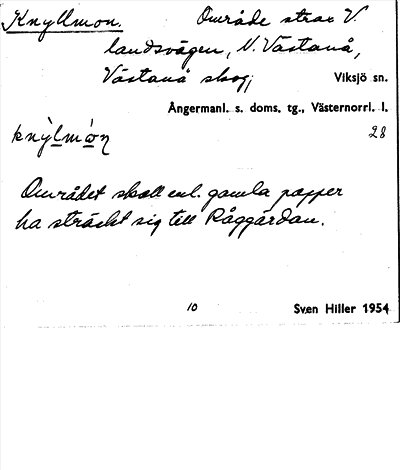 Knyllmon. Område strax V.
landsvägen, N. Västanå,
Västanå skog; Viksjö sn.
Ångermanl. s. doms. tg., Västernorrl. l.
knỳlmó̀n 28
Området skall enl. gamla papper
ha sträckt sig till Råggärdan.
10 Sven Hiller 1954